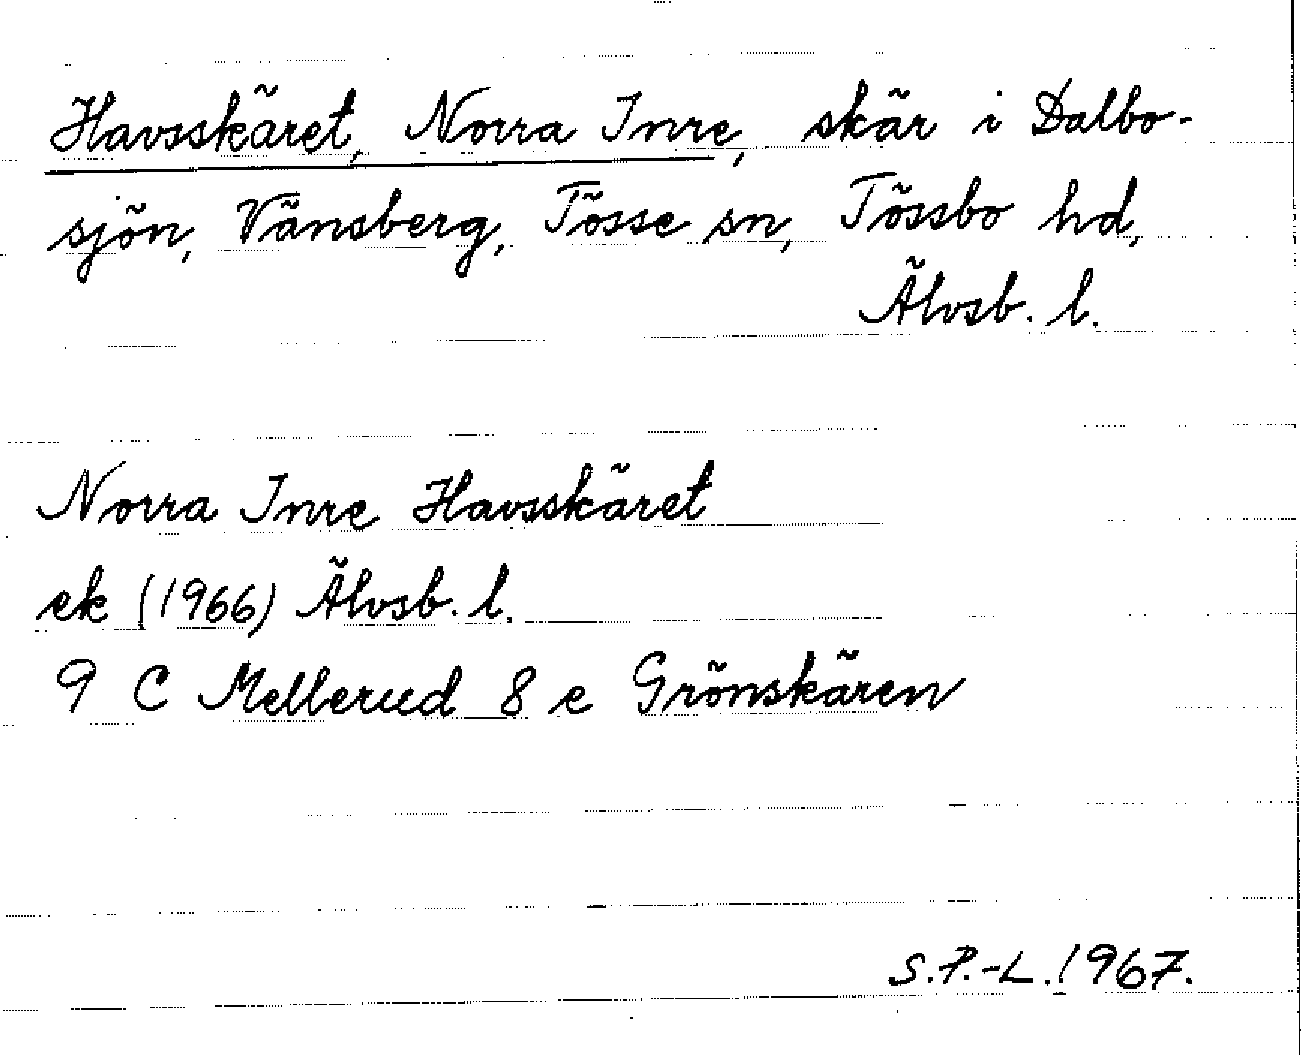 Havsskäret, Norra Inre, skär i Dalbo-
sjön, Vänsberg, Tösse sn, Tössbo hd,
Älvsb. l.
Norra Inre Havsskäret
ek (1966) Älvsb. l.
9 C Mellerud 8 e Grönskären
S.P.-L. 1967.